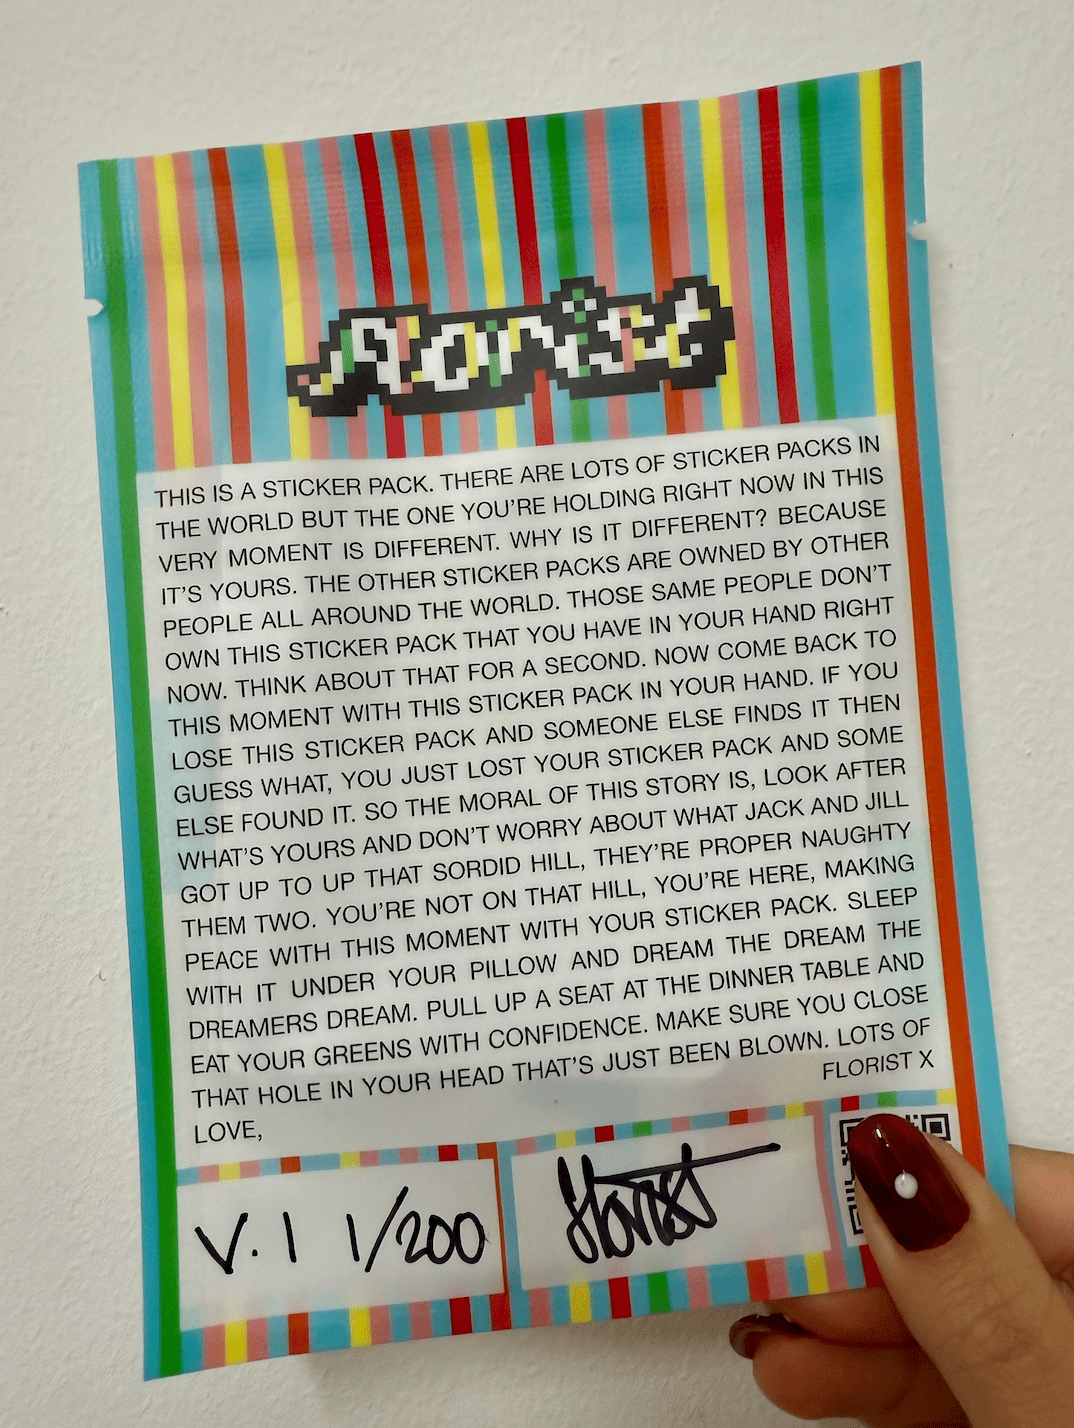 florist
THIS IS A STICKER PACK. THERE ARE LOTS OF STICKER PACKS IN
THE WORLD BUT THE ONE YOU'RE HOLDING RIGHT NOW IN THIS
VERY MOMENT IS DIFFERENT. WHY IS IT DIFFERENT? BECAUSE
IT'S YOURS. THE OTHER STICKER PACKS ARE OWNED BY OTHER
PEOPLE ALL AROUND THE WORLD. THOSE SAME PEOPLE DON'T
OWN THIS STICKER PACK THAT YOU HAVE IN YOUR HAND RIGHT
NOW. THINK ABOUT THAT FOR A SECOND. NOW COME BACK TO
THIS MOMENT WITH THIS STICKER PACK IN YOUR HAND. IF YOU
LOSE THIS STICKER PACK AND SOMEONE ELSE FINDS IT THEN
GUESS WHAT, YOU JUST LOST YOUR STICKER PACK AND SOME
ELSE FOUND IT. SO THE MORAL OF THIS STORY IS, LOOK AFTER
WHAT'S YOURS AND DON'T WORRY ABOUT WHAT JACK AND JILL
GOT UP TO UP THAT SORDID HILL, THEY'RE PROPER NAUGHTY
THEM TWO. YOU'RE NOT ON THAT HILL, YOU'RE HERE, MAKING
PEACE WITH THIS MOMENT WITH YOUR STICKER PACK. SLEEP
WITH IT UNDER YOUR PILLOW AND DREAM THE DREAM THE
DREAMERS DREAM. PULL UP A SEAT AT THE DINNER TABLE AND
EAT YOUR GREENS WITH CONFIDENCE. MAKE SURE YOU CLOSE
THAT HOLE IN YOUR HEAD THAT'S JUST BEEN BLOWN. LOTS OF
LOVE,
FLORIST X
V.1 1/200
florist